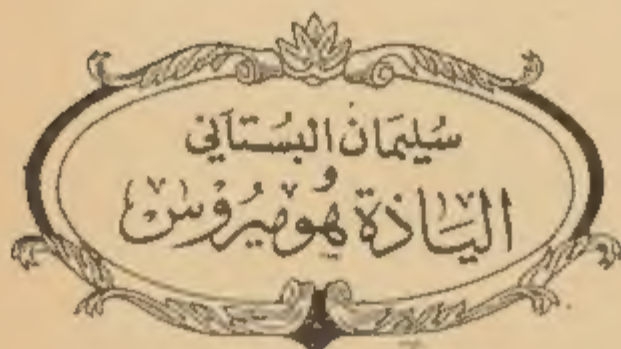 سُليمَان البُستاني
و
اليَاذة هوميرُوس